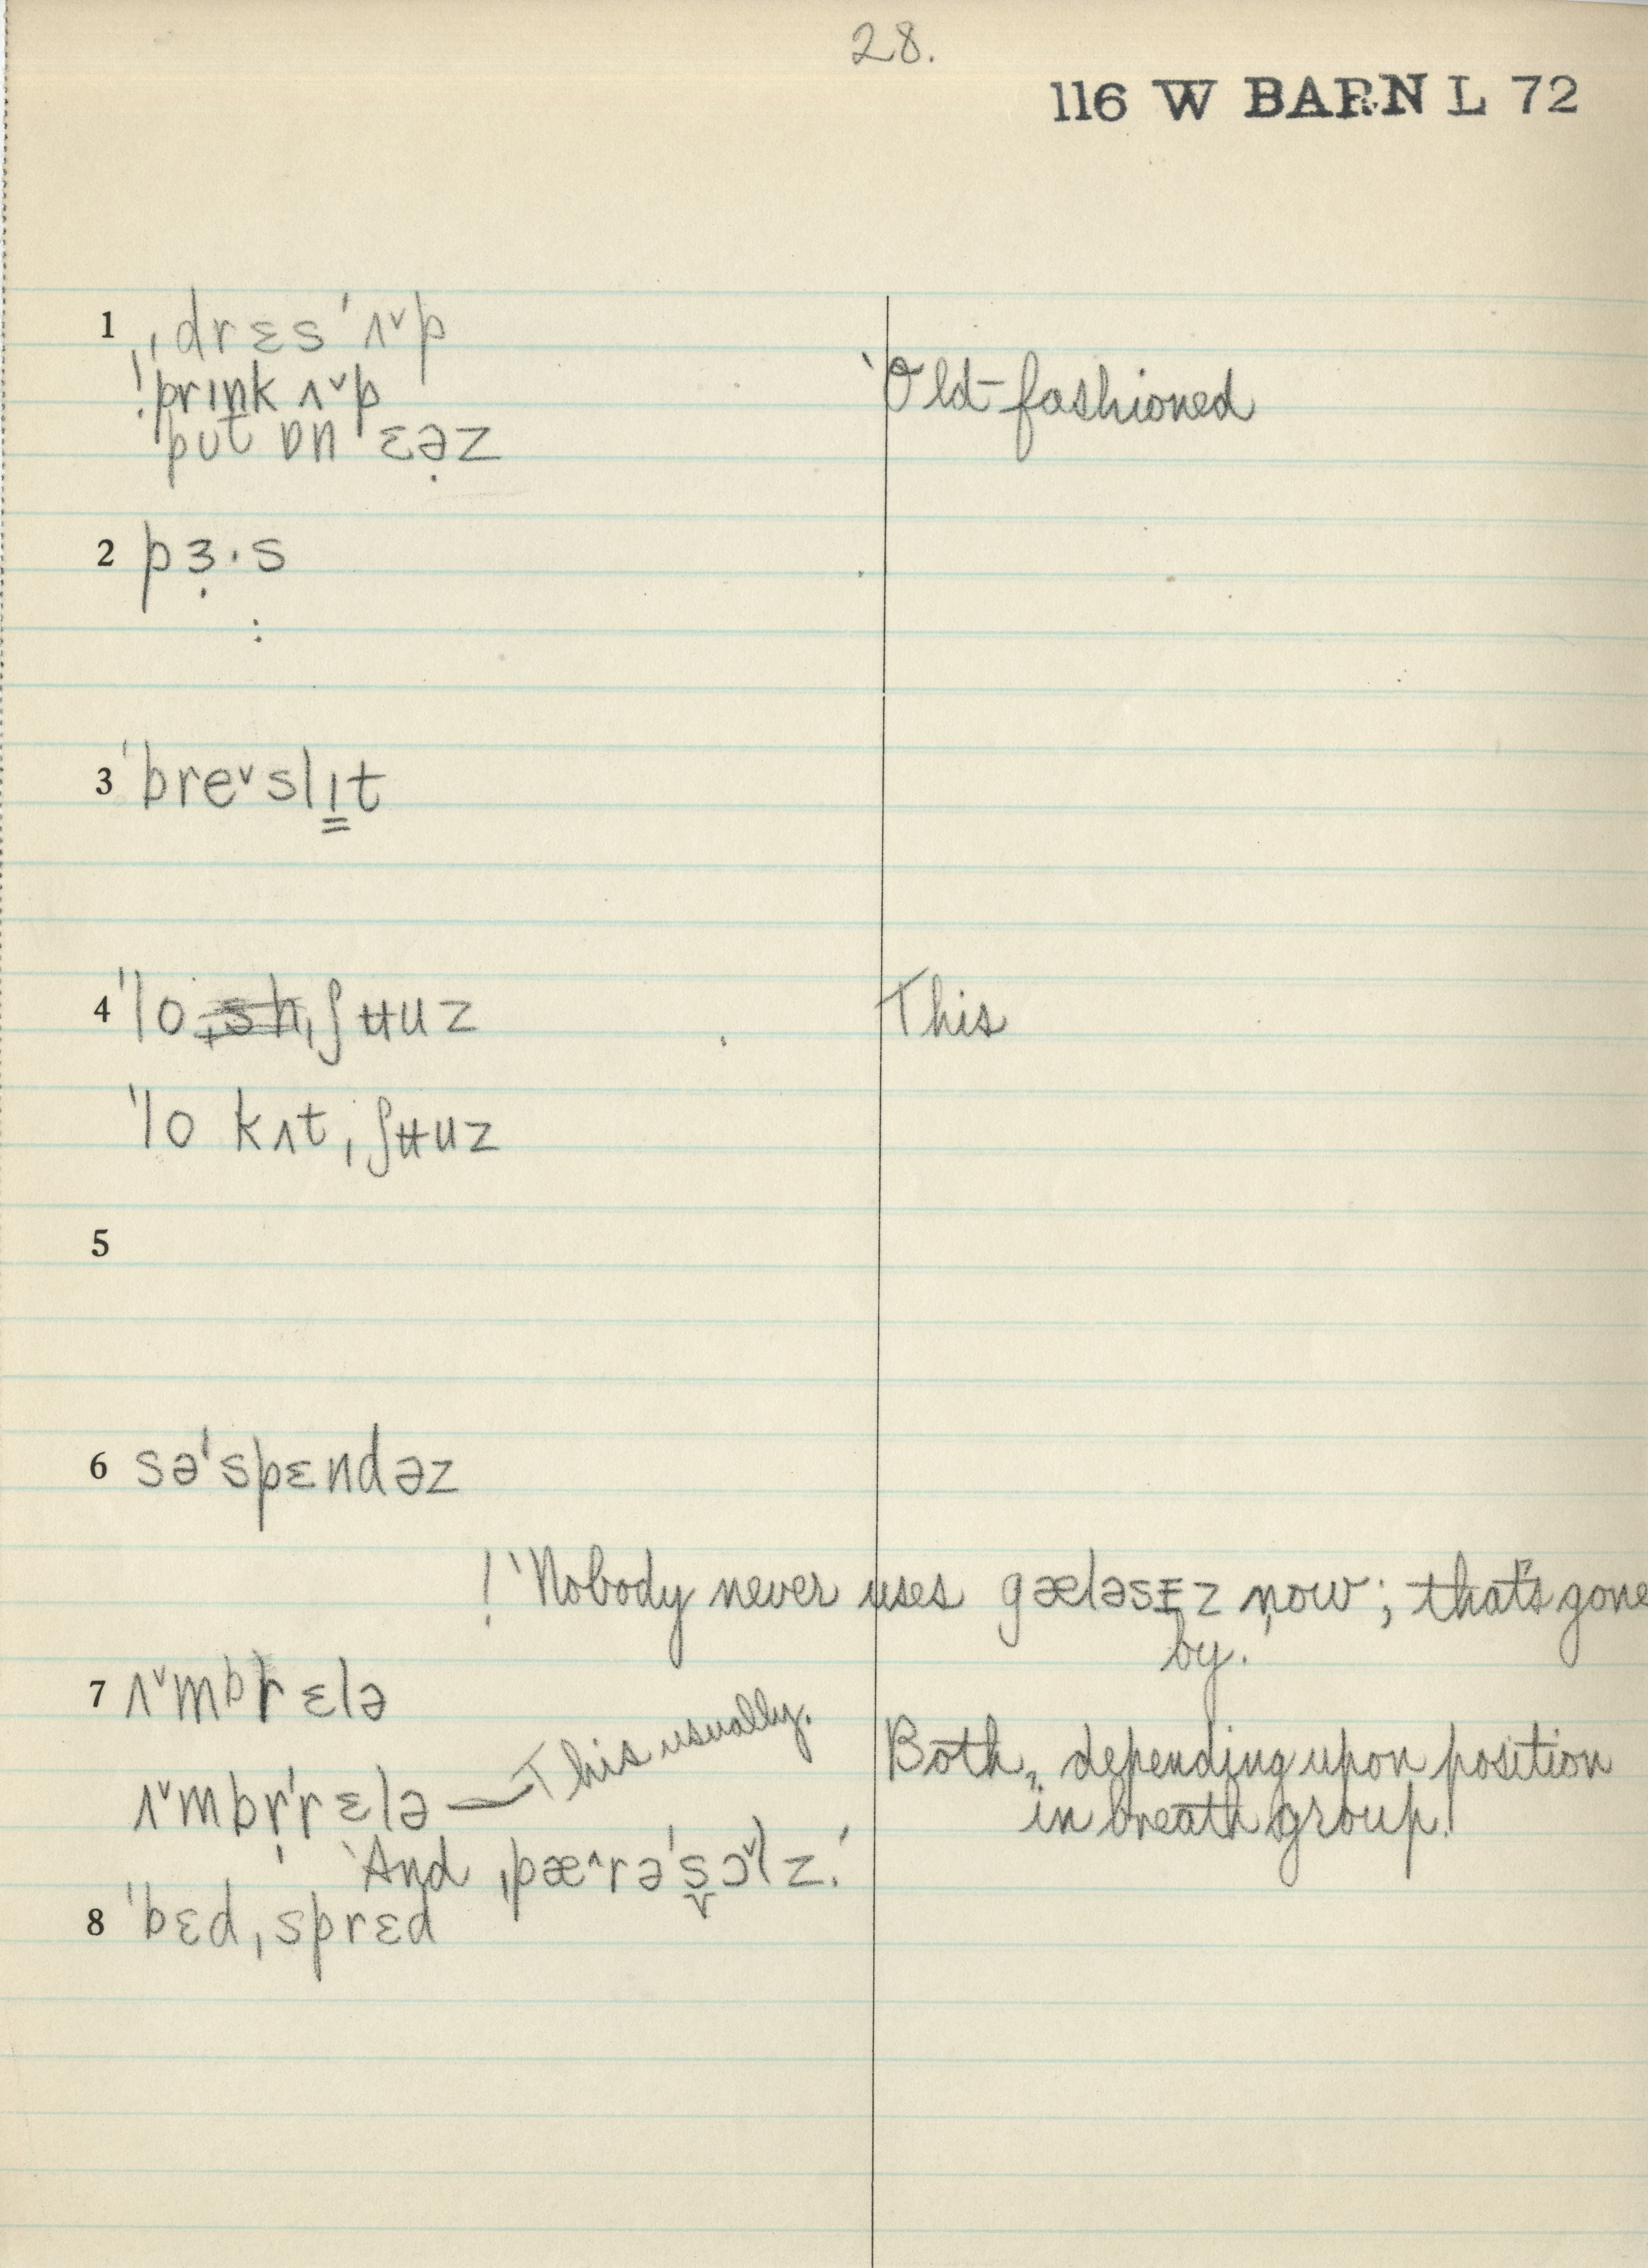 28.
116 W BARN L 72
1 ˌdrɛsˈʌ˅p
!ˈprɪnk ʌ˅p ‘Old-fashioned
pʊt ɒn ˈɛə̣z
2 pɜ̣·s
:
3 ˈbre˅slɪ̳t
4 ˈlo ˌʃʉuz This
ˈlo kʌt ˌʃʉuz
5
6 səˈspɛndəz
! ‘Nobody never uses gæləsɪz now; that's gone
by.’
7 ʌ˅mbrɛlə
ʌ˅mbr̩ˈrɛlə — This usually. Both, depending upon position
in breath group.
‘And ˌpæ˄rəˈs̬ɔ˅lz.’
8 ˈbɛdˌsprɛd